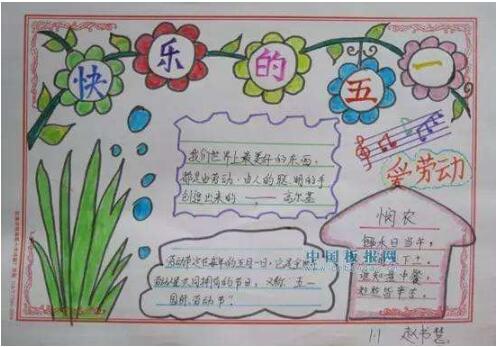 快乐的五一
爱劳动
我们世界上最美好的东西，
都是由劳动、由人的聪明的手
创造出来的。——高尔基
悯农
锄禾日当午，
汗滴禾下土。
谁知盘中餐，
粒粒皆辛苦。
中国板报网
劳动节定在每年的五月一日，它是全世界
劳动人民共同拥有的节日，又称"五一
国际劳动节"。
1.1 赵书慧